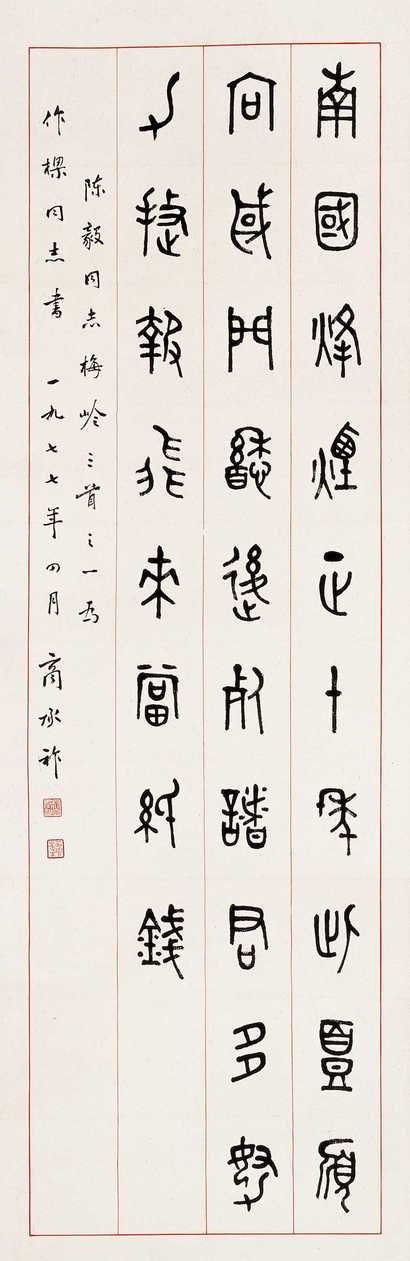 南國烽煙正十年此頭須
向國門懸後死諸君多努
力捷報飛來當紙錢
陈毅同志梅岭三首之一为
作樑同志書 一九七七年四月 商承祚